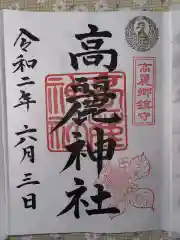 高麗郷鎮守
高麗神社
令和二年 六月三日